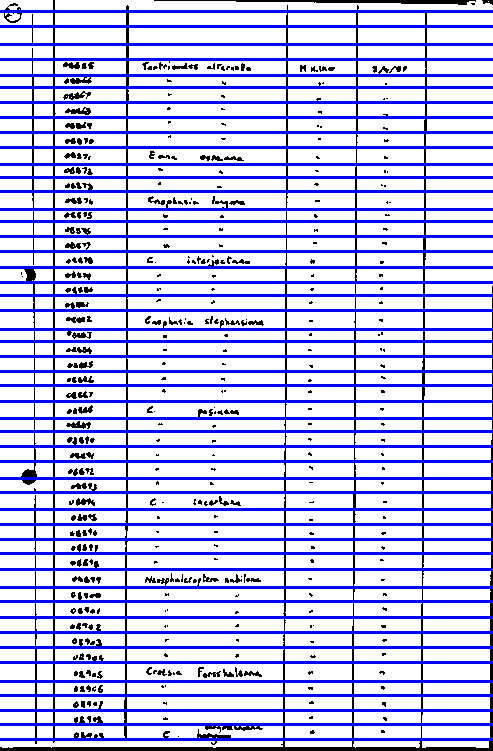 08865 Tortricodes alternella M Killner
08866 " " " "
08867 " " " "
08868 " " " "
08869 " " " "
08870 " " " "
08871 Eana osseana " "
08872 " " " "
08873 " " " "
08874 Cnephasia longana " "
08875 " " " "
08876 " " " "
08877 " " " "
08878 C. interjectana " "
08879 " " " "
08880 " " " "
08881 " " " "
08882 Cnephasia stephensiana " "
08883 " " " "
08884 " " " "
08885 " " " "
08886 " " " "
08887 " " " "
08888 C. pasiuana " "
08889 " " " "
08890 " " " "
08891 " " " "
08892 " " " "
08893 " " " "
08894 C. incertana " "
08895 " " " "
08896 " " " "
08897 " " " "
08898 " " " "
08899 Neosphaleroptera nubilana " "
08900 " " " "
08901 " " " "
08902 " " " "
08903 " " " "
08904 " " " "
08905 Croesia Forsskaleana " "
08906 " " "
08907 " " " "
08908 " " " "
08909 C. " "